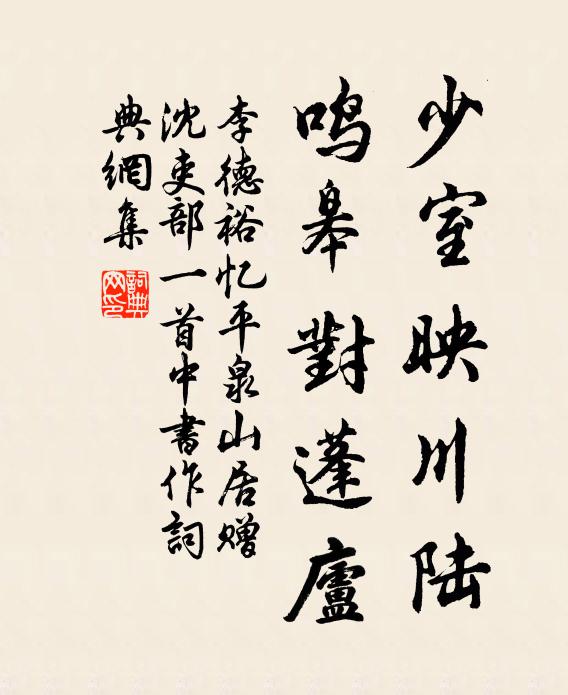 少室映川陆
鸣皋對蓬廬
李德裕忆平泉山居赠
沈吏部一首中書作詞
典網集
詞典網印